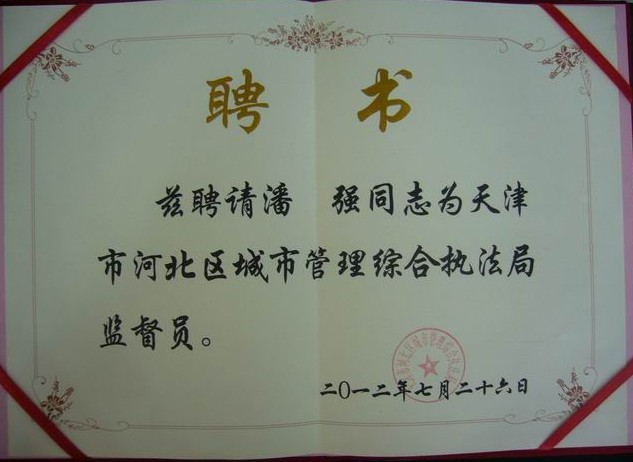 聘 书
兹聘请潘 强同志为天津
市河北区城市管理综合执法局
监督员。
二〇一二年七月二十六日